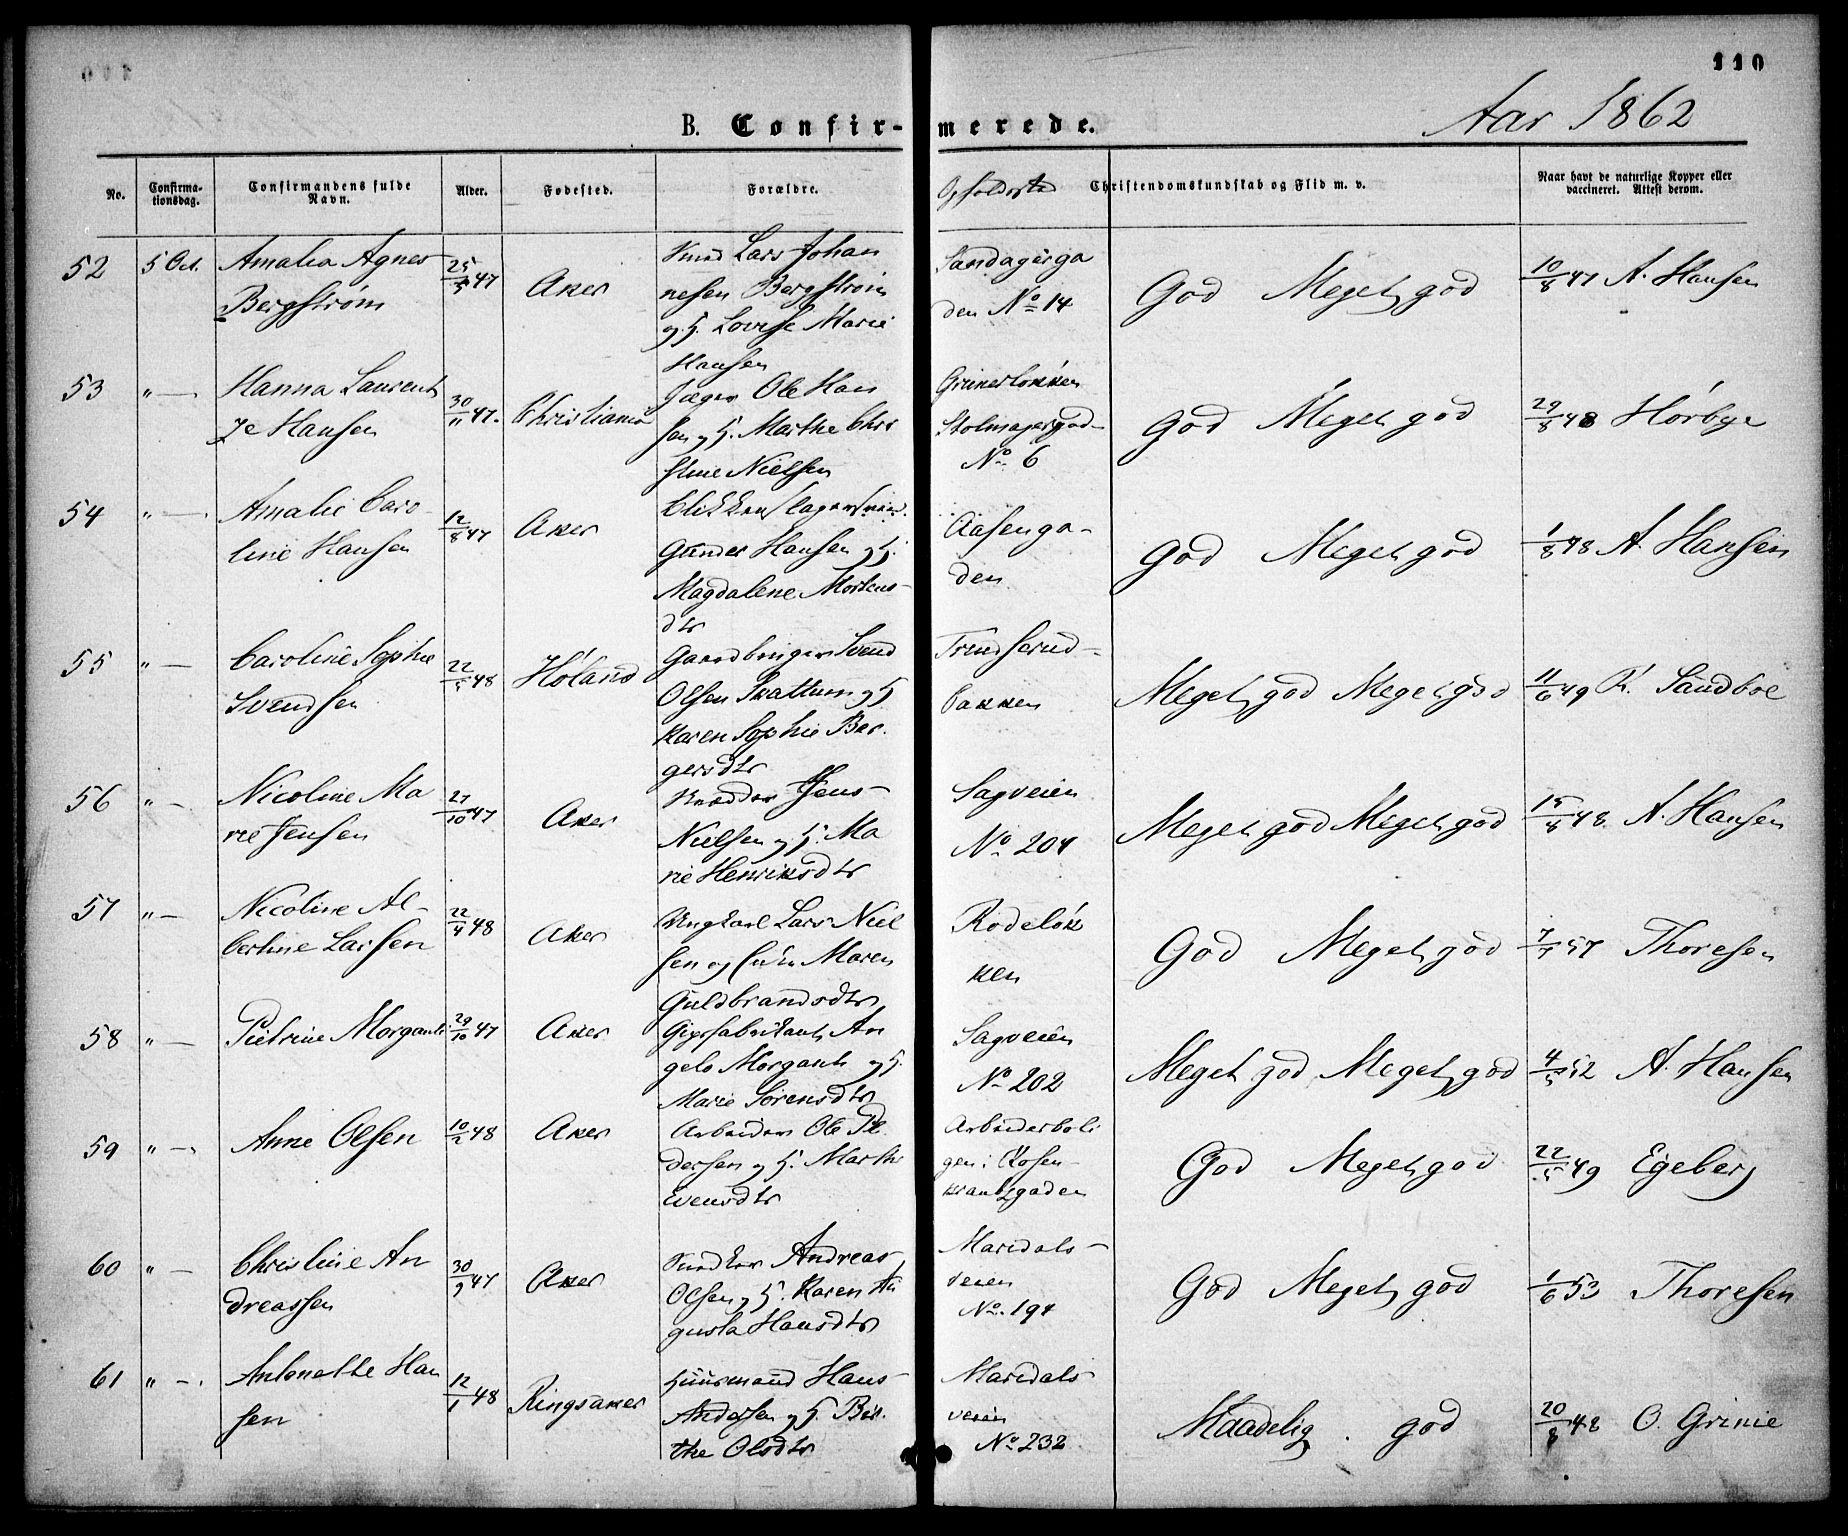 110
B. Confirmerede.
Aar 1862
No.
Confirma-
tionsdag.
Confirmandens fulde
Navn.
Alder.
Fødested.
Forældre.
Opholdssted
Christendomskundskab og Flid m. v.
Naar havt de naturlige Kopper eller
vaccineret. Attest derom.
52 5 Oct. Amalia Agnes
Bergstrøm
47
Aker
Lars Johan
nesen Bergstrøm
og H. Lovise Marie
Hansen
Sandagerga
den No 14
God Meget god
10/8 47 A. Hansen
53 " — Hanna Laurent
ze Hansen
30/11 47.
Christiania
Jæger Ole Han
sen og H. Marthe Chri
stine Nielsen
Grünerløkken
Stolmagergad-
No 6
God Meget god
29/8 48 Hørbye
54 " — Amalie Caro-
line Hansen
12/8 47
Aker
Blikkenslagersvend.
Gunder Hansen og H.
Magdalene Mortens-
dtr
Aasenga-
den
God Meget god
1/8 48 A. Hansen
55 " — Caroline Sophie
Svendsen
22/5 48
Høland
Gaardbruger Svend
Olsen Skattum og H
Karen Sophie Bør.
gersdtr
Trondserud-
bakken
Meget god Meget god
11/6 49 K. Sandboe
56 " — Nicoline Ma
rie Jensen
27/10 47
Aker
Jens
Nielsen og H. Ma
rie Henriksdtr
Sagveien
No 204
Meget god Meget god
15/8 48 A. Hansen
57 " — Nicoline Al-
bertine Larsen
22/4 48
Aker
Ungkarl Lars Niel
sen og Maren
Guldbrandsdtr
Rodeløk
ken
God Meget god
57 Thoresen
58 " — Pietrine Morganti
29/10 47
Aker
Gipsfabrikant An
gelo Morganti og H.
Marie Sørensdtr
Sagveien
No 202
Meget god Meget god
4/5 52 A. Hansen
59 " — Anne Olsen
10/2 48
Aker
Arbeider Ole Pe
dersen og H. Marthe
Evensdtr
Arbeiderboli
gen i Rosen-
krantzgaden
God Meget god
22/5 49 Egeberg
60 " — Christine An
dreassen
30/9 47
Aker
Andreas
Olsen og H. Karen Au
gusta Hansdtr
Maridals-
veien
No. 194
God Meget god
1/6 53 Thoresen
61 " — Antonette Han
sen
12/1 48
Ringsaker
Huusmand Hans
Andersen og H. Ber.
the Olsdtr
Maridals
veien
No 232
Maadelig. god
20/8 48 O. Grinie